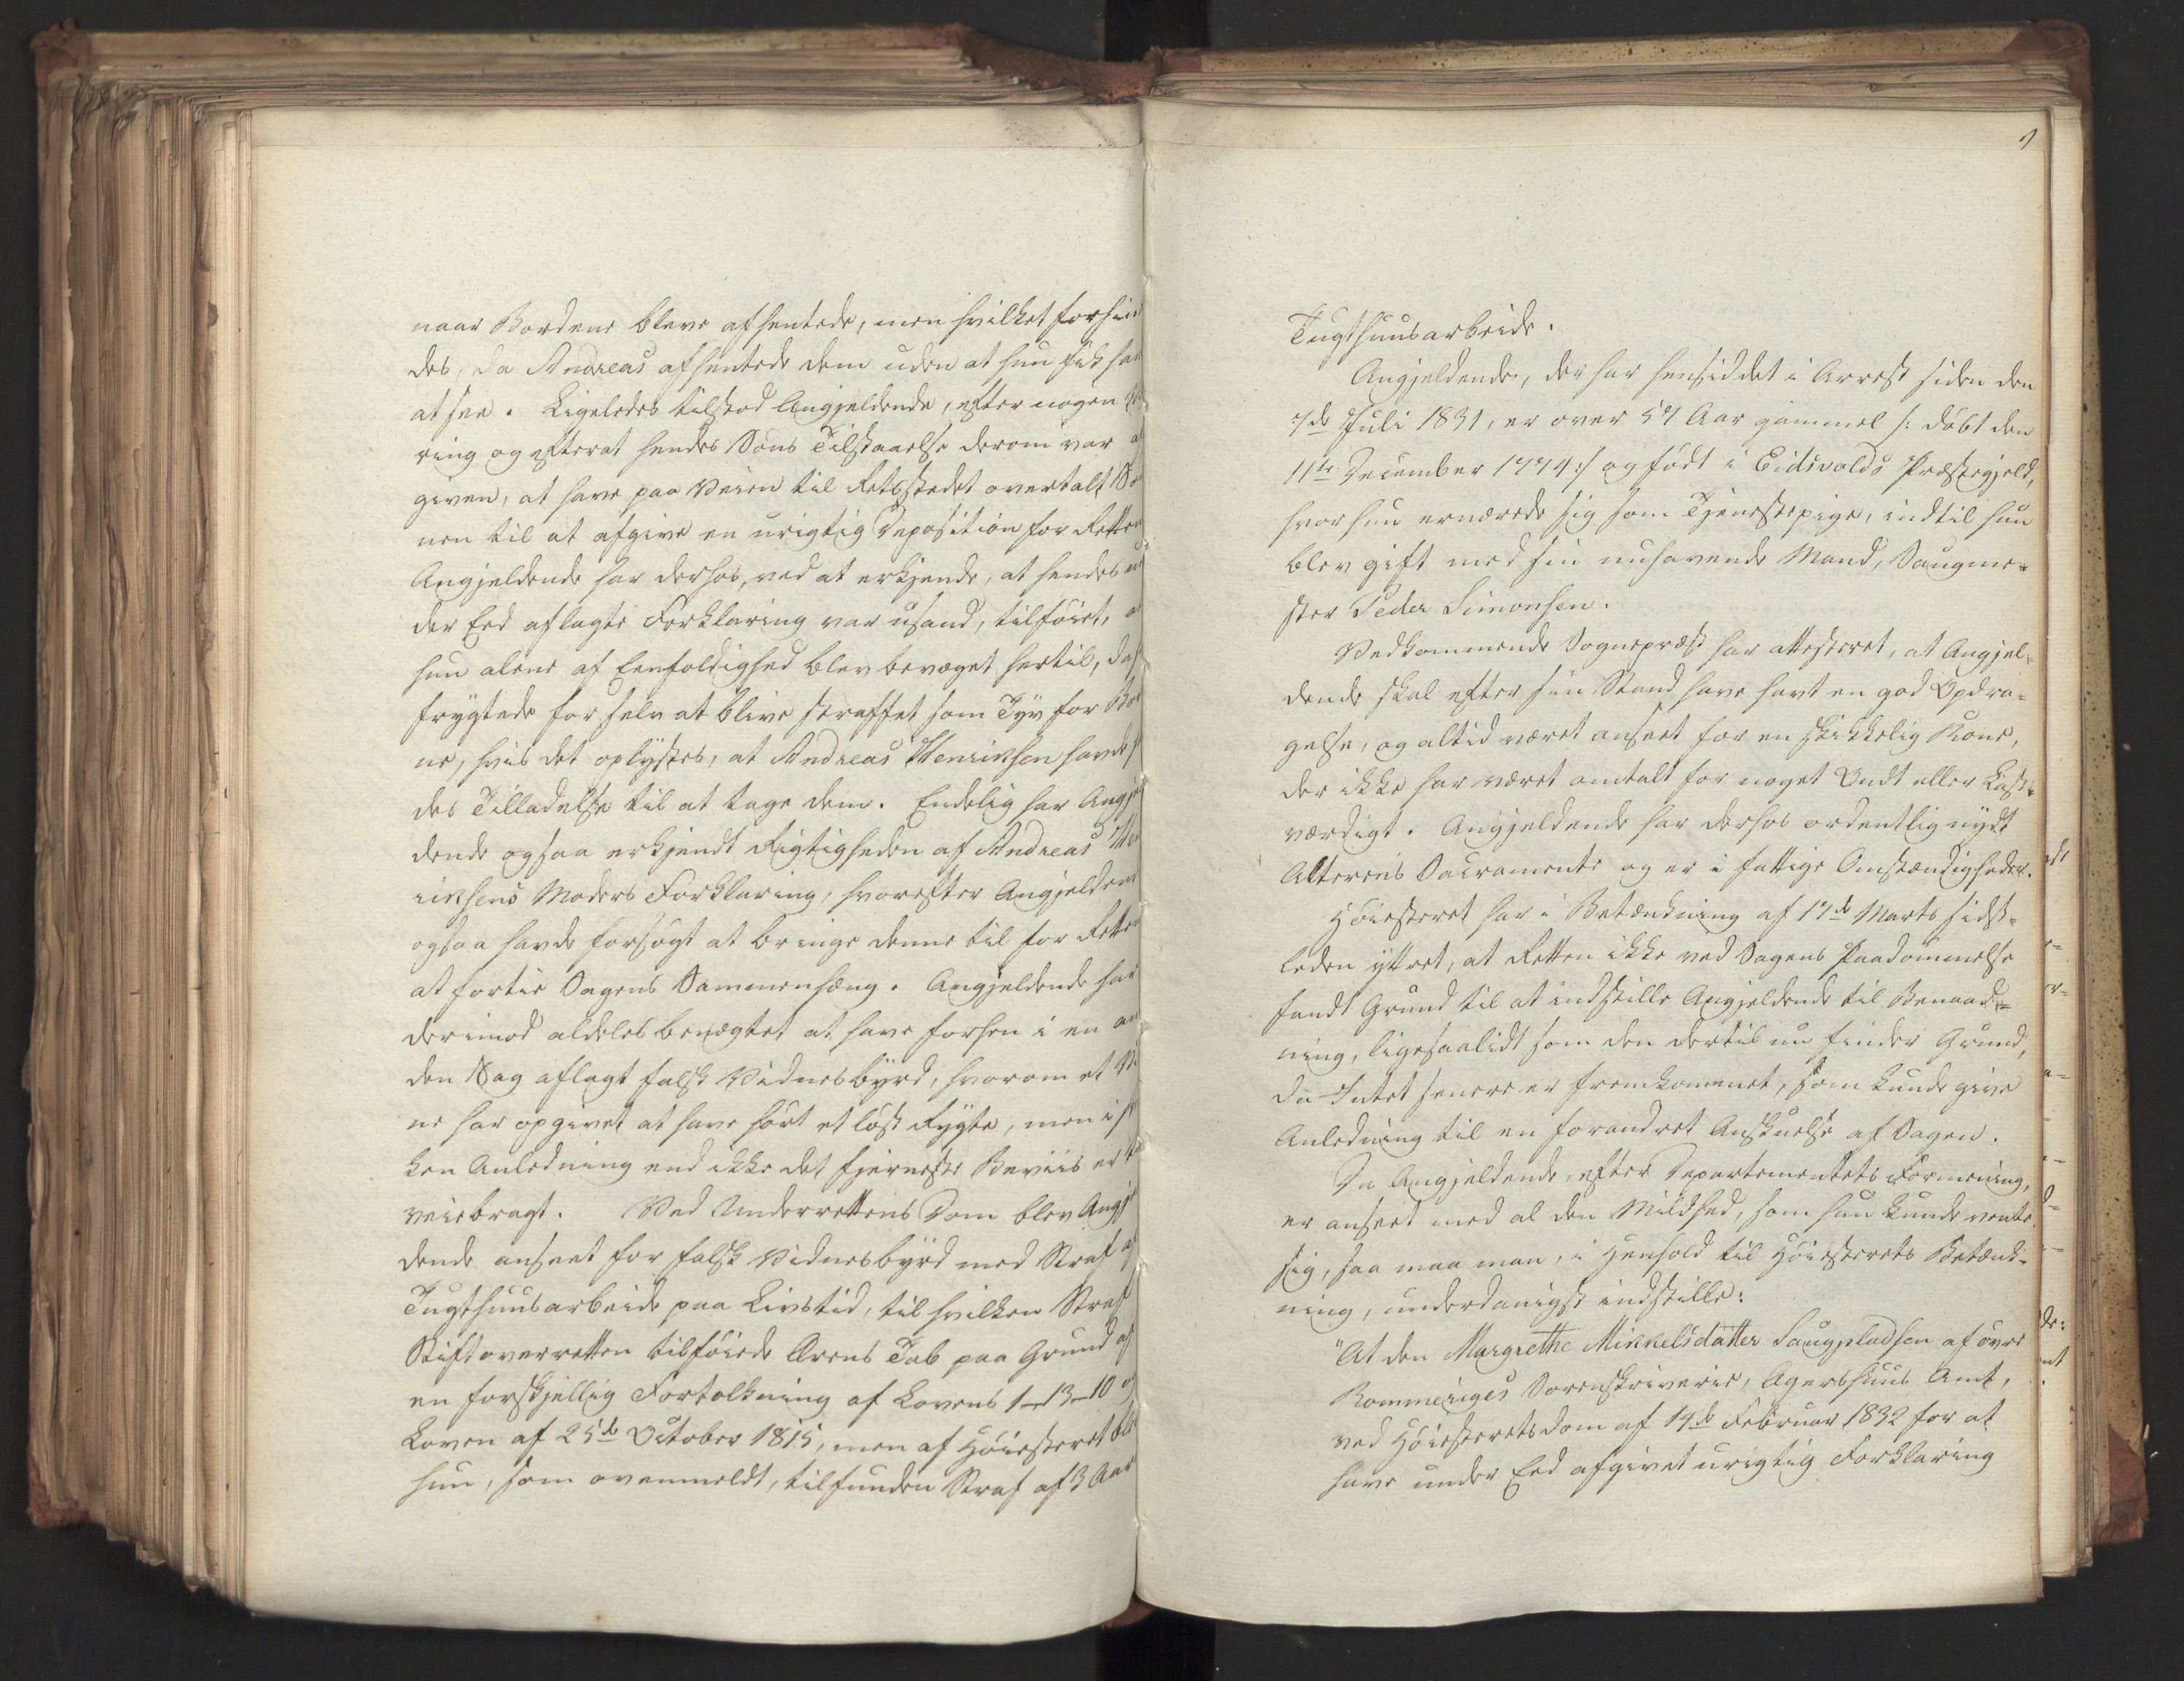 naar Bordene bleve afhentede, men hvilket forhin
des, da Andreas afhentede dem uden at hun fik ham
at see. Ligeledes tilstod Angjeldende, efter nogen
ring og efterat hendes Søns Tilstaaelse derom var af
given, at have paa Veien til Retsstedet overtalt Søn
nen til at afgive en urigtig Deposition for Retten
Angjeldende har derhos, ved at erkjende, at hendes un
der Eed aflagte Forklaring var usand, tilføiet, at
hun alene af Eenfoldighed blev bevæget hertil, da h
frygtede for selv at blive straffet som Tyv for Bor
ne, hvis det oplystes, at Andreas Henriksen havde h
des Tilladelse til at tage dem. Endelig har Angjel
dende ogsaa erkjendt Rigtigheden af Andreas Hen
riksens Moders Forklaring, hvorefter Angjeldende
ogsaa havde forsøgt at bringe denne til for Retten
at fortie Sagens Sammenhæng. Angjeldende har
derimod aldeles benægtet at have forhen i en an
den Sag aflagt falsk Vidnesbyrd, hvorom et Vid
ne har opgivet at have hørt et løst Rygte, men i hvil
ken Anledning end ikke det fjerneste Beviis er til
veiebragt. Ved Underrettens Dom blev Angjel
dende anseet for falsk Vidnesbyrd med Straf af
Tugthuusarbeide paa Livstid, til hvilken Straf
Stiftoverretten tilføiede Ærens Tab paa Grund af
en forskjellig Fortolkning af Lovens 1-13-10 og
Loven af 25de October 1815, men af Høiesteret blev
hun, som ovenmeldt, tilfunden Straf af 3 Aars
Tugthuusarbeide.
Angjeldende, der har hensiddet i Arrest siden den
7de Juli 1831, er over 57 Aar gammel /: døbt den
11te December 1774 :/ og født i Eidsvolds Præstegjeld,
hvor hun ernærede sig som Tjenestepige, indtil hun
blev gift med sin nuhavende Mand, Saugme-
ster Peder Simonsen.
Vedkommende Sognepræst har attesteret, at Angjel-
dende skal efter sin Stand have havt en god Opdra-
gelse, og altid været anseet for en skikkelig Kone,
der ikke har været omtalt for noget Ondt eller Last-
værdigt. Angjeldende har derhos ordentlig nydt
Alterens Sacramente og er i fattige Omstændigheder.
Høiesteret har i Betænkning af 17de Marts sidst-
leden yttret, at Retten ikke ved Sagens Paadømmelse
fandt Grund til at indstille Angjeldende til Benaad-
ning, ligesaalidt som den dertil nu finder Grund,
da Intet senere er fremkommet, som kunde give
Anledning til en forandret Anskuelse af Sagen.
Da Angjeldende, efter Departementets Formening,
er anseet med al den Mildhed, som hun kunde vente
sig, saa maa man, i Henhold til Høiesterets Betænk-
ning, underdanigst indstille:
"At den Margrethe Mikkelsdatter Saugpladsen af øvre
Rommeriges Sorenskriverie, Agershuus Amt,
ved Høiesteretsdom af 14de Februar 1832 for at
have under Eed afgivet urigtig Forklaring